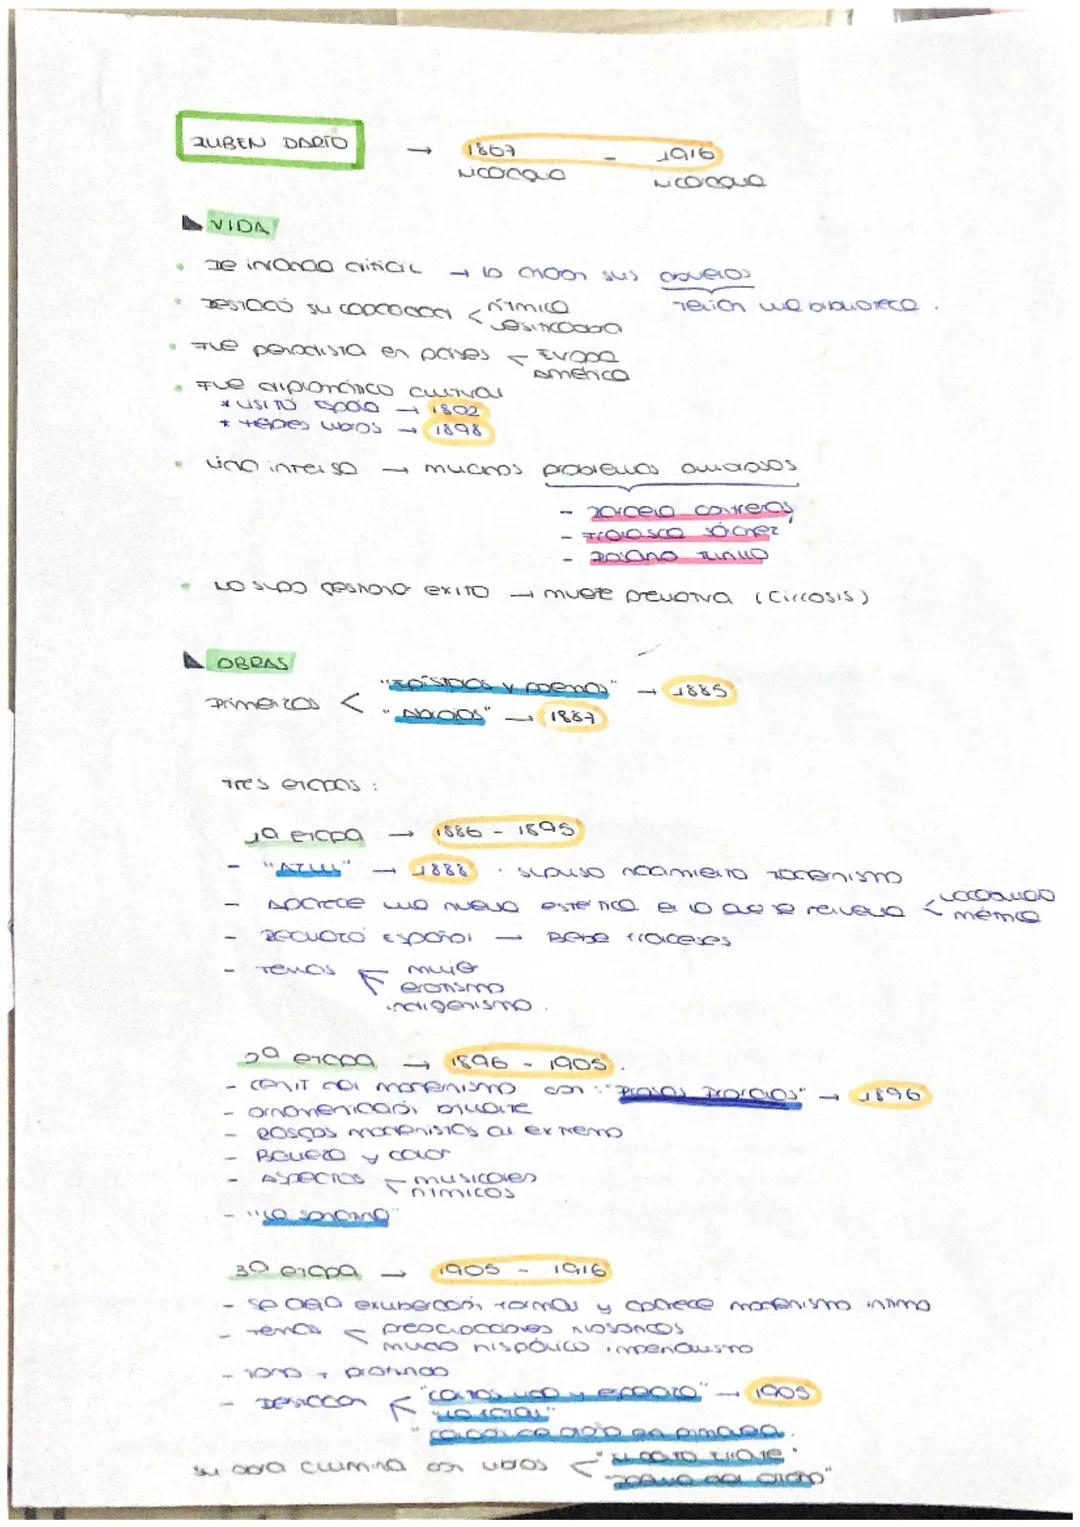 RUBEN DARÍO → 1867 - 1916
Nicaragua Nicaragua
VIDA
De infancia difícil → lo crían sus abuelos
Tenían una biblioteca.
Destacó su capacidad < rítmica
versificadora
Fue periodista en países < Europa
América
Fue diplomático cultural
* visitó España → 1802
* → 1898
Vida intensa → muchos problemas amorosos
- contreras
- Francisca Sánchez
- Rosario Murillo
No supo gestionar éxito → muere prematura (Cirrosis)
OBRAS
Primeras < "Epístolas y poemas" → 1885
"Abrojos" → 1887
Tres etapas :
1ª etapa → 1886 - 1895
- "AZUL" → 1888 : supuso nacimiento modernismo
- Aparece una nueva estética en la que se renueva < vocabulario
métrica
- español → Bebe franceses
- Temas < mujer
erotismo
indigenismo.
2ª etapa → 1896 - 1905.
- cenit del modernismo con: "Prosas Profanas" → 1896
- ornamentación brillante
- Rasgos modernistas al extremo
- Belleza y color
- Aspectos < musicales
rítmicos
- "La sonatina"
3ª etapa → 1905 - 1916
- Se deja exuberancia formal y aparece modernismo íntimo
- Temas < preocupaciones filosóficas
mundo hispánico imperialismo
- Tono + profundo
- Destacan < "Cantos vida y esperanza" → 1905
"Lo fatal"
"Canción de otoño en primavera.
Su obra culmina con libros < "El canto errante"
"Poema del otoño"